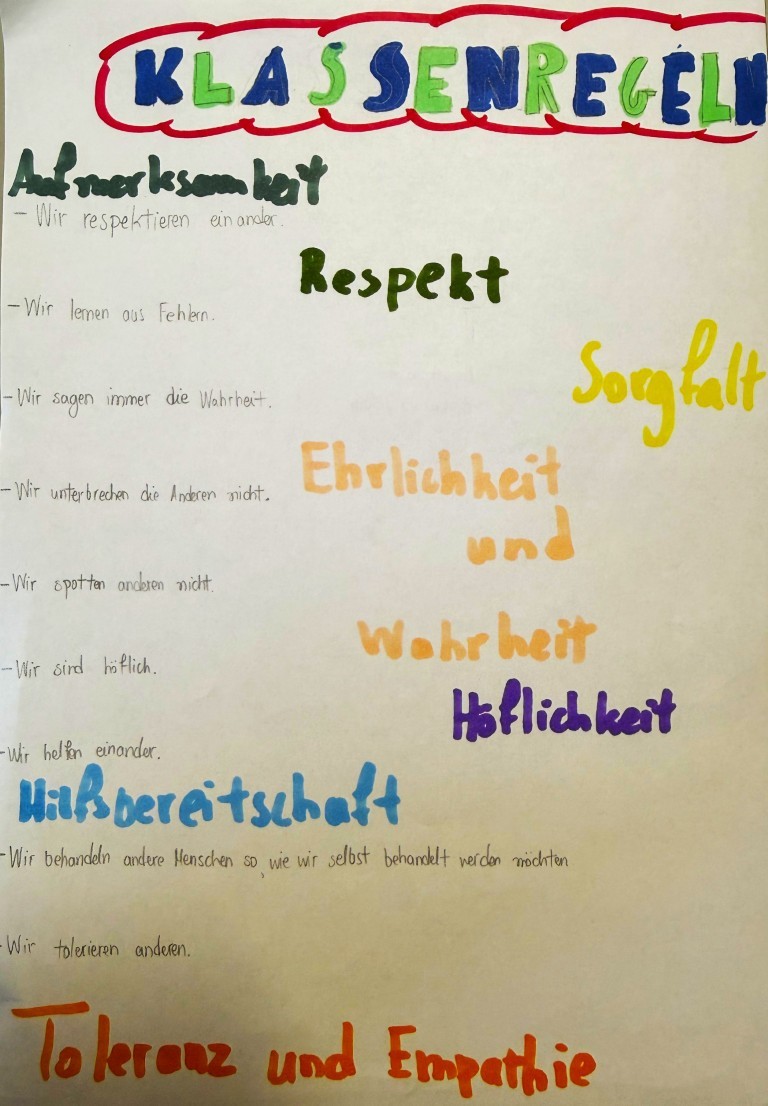 KLASSENREGELN
Aufmerksamkeit
- Wir respektieren einander.
Respekt
- Wir lernen aus Fehlern.
Sorgfalt
- Wir sagen immer die Wahrheit.
Ehrlichkeit
- Wir unterbrechen die Anderen nicht.
und
- Wir spotten anderen nicht.
Wahrheit
- Wir sind höflich.
Höflichkeit
- Wir helfen einander.
Hilfsbereitschaft
- Wir behandeln andere Menschen so, wie wir selbst behandelt werden möchten
- Wir tolerieren anderen.
Toleranz und Empathie